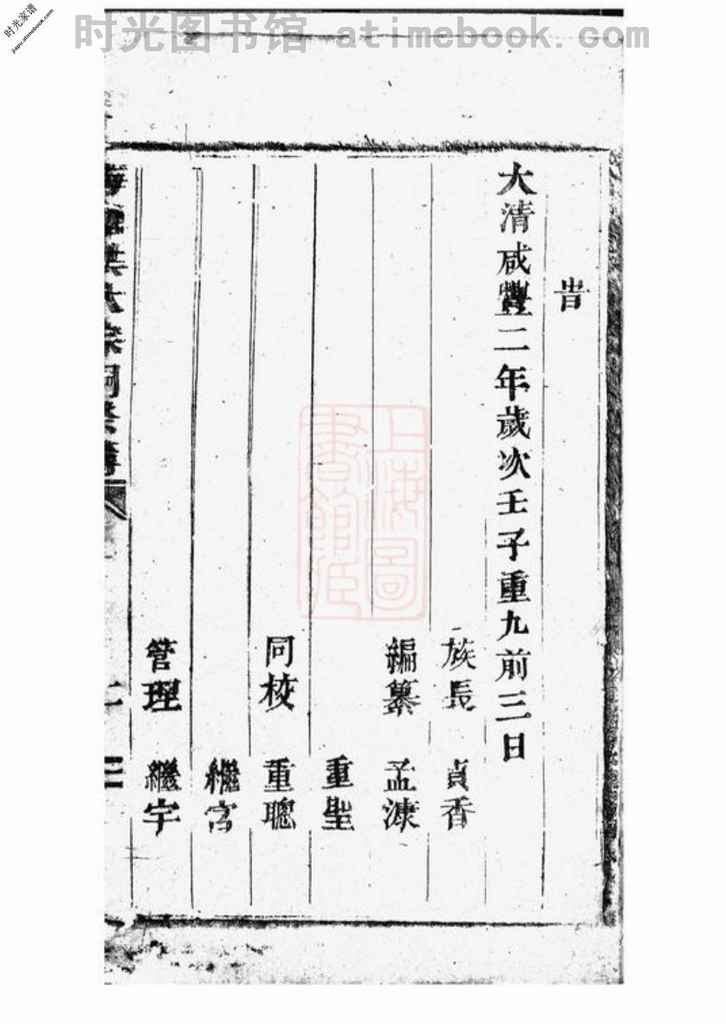 时光图书馆 atimebook.com
时光家谱
jiapu.atimebook.com
旹
大清咸豐二年歲次壬子重九前三日
族長 貞香
編纂 孟漮
重聖
同校 重聰
繼宮
管理 繼宇
上海圖書館藏